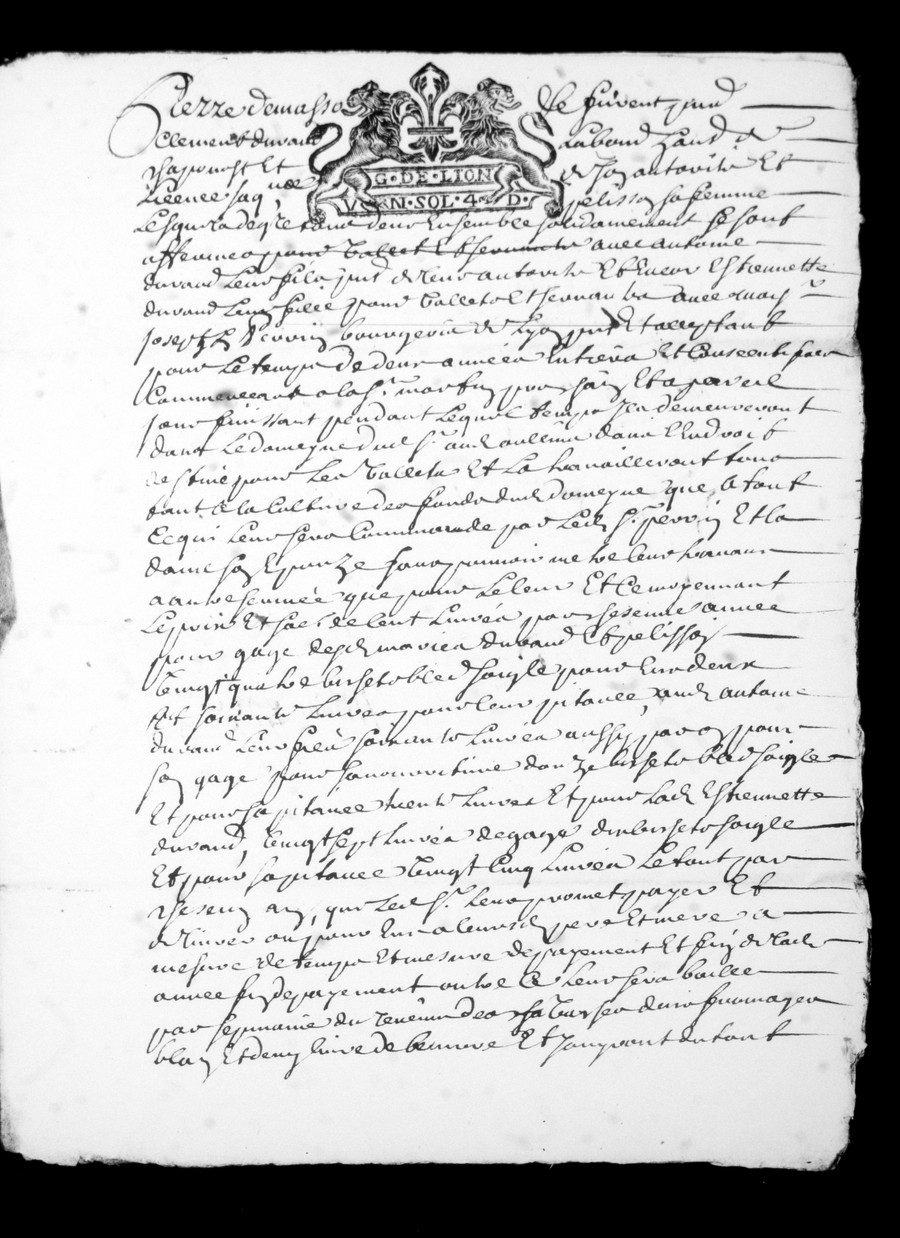 Pierre demasso le fuirent pnt
Clement durand Laboureur habitant de
chaponost Et de son autorité Et
licence Jaqme pelisson sa femme
G·DE·LION
V N·SOL·4 D·
Lesquels de gre tous deux Ensemble solidairement se sont
affermes pour vallect Et servante avec antoine
durand leur fils pnt de leur autorite Et Encor Estiennette
durand leur fille pour vallets Et servantes avec
Joseph perrin bourgeois de Lyon pnt Et acceptant
pour Le temps de deux années Entieres Et Consecutifves
Commencant a la st martin prochain Et a pareil
Jour finissant pendant Lequel temps Ils demeureront
dans Le domeyne dud sr aud dans Lendroit
destiné pour Les vallets Et La travailleront tous
tant a la Culture des fonds dud domeyne que a tout
Ce qui Leur sera Commande par Led sr perrin Et la
dame son Epouze sans pouvoir metre leurs travaux
a autre semmée que pour Le leur Et Ce moyennant
Le prix Et de Cent Livres par chesenne année
pour gage desd mariés durand Et pelisson
vingt quatre bichets bled soigle pour Eux deux
Et soixante Livres pour leur pitance, aud antoine
durand Leur fils soixante Livres aussy par an pour
son gage pour sa nourriture douze bichets bled soigle
Et pour sa pitance trente Livres Et pour Lad Estiennette
durand, vingt sept Livres de gage dix bichets soigle
Et pour sa pitance vingt Cinq Livres Le tout par
chescun an, que Led sr Leur promet payer Et
delivrer ou pour Eux a leursd pere Et mere a
mesure de temps Et mesure de payement Et fin de lad
année fin de payement outre Ce Leur sera baille
par sepmaine du revenu des vaches dix fromages
blanc Et demy livre de beurre Et Jouyront du tout